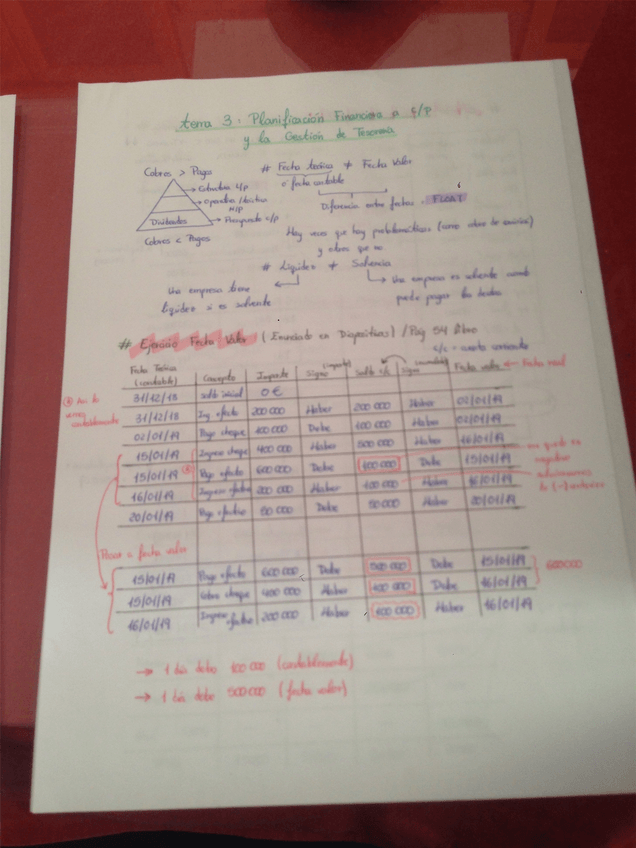 Tema 3: Planificación Financiera a c/p
y la Gestión de Tesorería
Cobros > Pagos
Dividendos
Cobros < Pagos
# Fecha teórica ≠ Fecha Valor
o fecha contable
Diferencia entre fechas = FLOAT
Hay veces que hay problemáticas (como cobro de
y otras que no
# Liquidez ≠ Solvencia
Una empresa tiene
liquidez si es solvente
Una empresa es solvente cuando
puede pagar las deudas
# Ejercicio Fecha Valor (Enunciado en Diapositivas) / Pág 54 libro
c/c = cuenta corriente
Fecha Teórica (contable) Concepto Importe Signo (importe) Saldo c/c Signo Fecha valor ← Fecha real
31/12/18 saldo inicial 0 €
31/12/18 Ing. efecto 200 000 Haber 200 000 Haber 02/01/19
02/01/19 Pago cheque 100 000 Debe 100 000 Haber 02/01/19
15/01/19 Ingreso cheque 400 000 Haber 500 000 Haber 16/01/19
15/01/19 Pago efecto 600 000 Debe 100 000 Debe 15/01/19
16/01/19 Ingreso efectivo 200 000 Haber 100 000 Haber 16/01/19
20/01/19 Pago efectivo 50 000 Debe 50 000 Haber 20/01/19
Pasos a fecha valor
15/01/19 Pago efecto 600 000 Debe 500 000 Debe 15/01/19
15/01/19 Cobro cheque 400 000 Haber 100 000 Debe 16/01/19
16/01/19 Ingreso efectivo 200 000 Haber 100 000 Haber 16/01/19
600000
→ 1 día debo 100 000 (contablemente)
→ 1 día debo 500 000 (fecha valor)